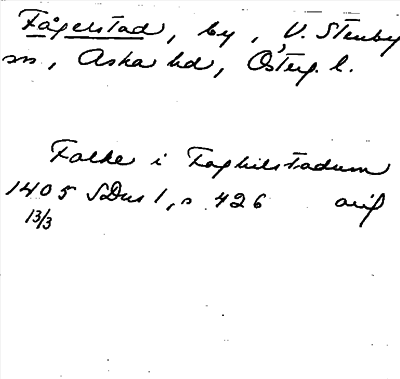 Fågerstad, by, V. Stenby
sn, Aska hd, Österg. l.
Folke i Foghilstadum
1405 SDns 1, s 426 avs
13/3